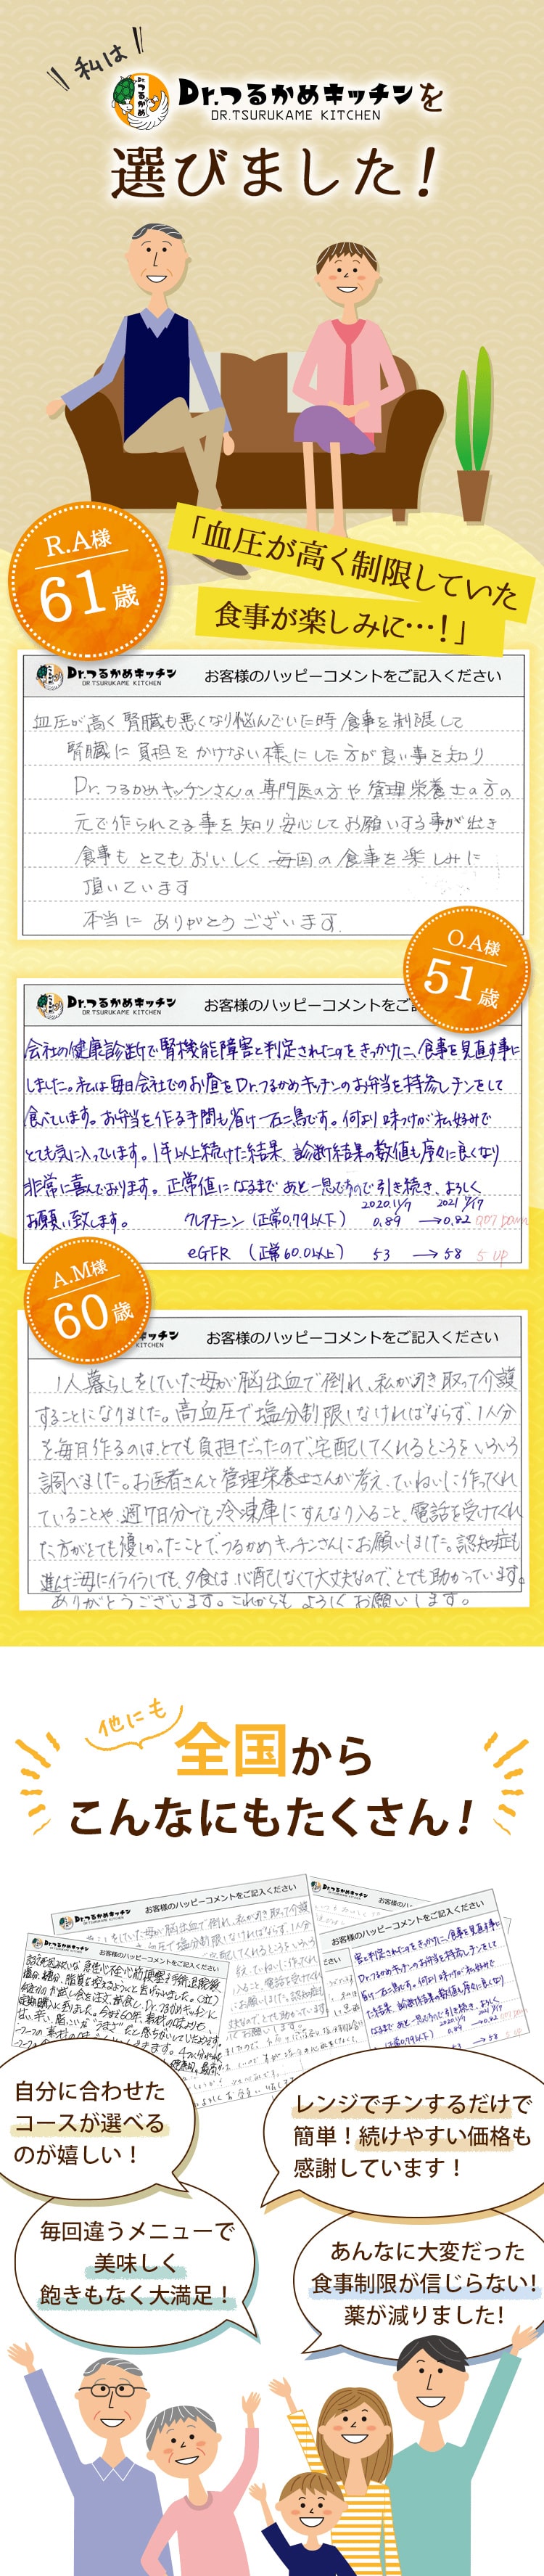 私は
Dr.つるかめキッチンを
DR.TSURUKAME KITCHEN
選びました!
R.A様
61歳
「血圧が高く制限していた
食事が楽しみに…!」
Dr.つるかめキッチン
DR.TSURUKAME KITCHEN
お客様のハッピーコメントをご記入ください
血圧が高く腎臓も悪くなり悩んでいた時食事を制限して
腎臓に負担をかけない様にした方が良い事を知り
Dr.つるかめキッチンさんの専門医の方や管理栄養士の方の
元で作られてる事を知り安心してお願いする事が出き
食事もとてもおいしく毎回の食事を楽しみに
頂いています
本当にありがとうございます。
O.A様
51歳
Dr.つるかめキッチン
DR.TSURUKAME KITCHEN
お客様のハッピーコメントをご
会社の健康診断で腎機能障害と判定されたのをきっかけに、食事を見直す事に
しました。私は毎日会社でのお昼をDr.つるかめキッチンのお弁当を持参しチンをして
食べています。お弁当を作る手間も省け一石二鳥です。何より味つけが私好みで
とても気に入っています。1年以上続けた結果、診断結果の数値も序々に良くなり
非常に喜んでおります。正常値になるまであと一息ですので引き続き、よろしく
お願い致します。
2020.11/9 2021.11/17
クレアチニン(正常0.79以下) 0.89 → 0.82 0.07 Down
eGFR (正常60.0以上) 53 → 58 5 UP
A.M様
60歳
キッチン
KITCHEN
お客様のハッピーコメントをご記入ください
1人暮らしをしていた母が脳出血で倒れ、私が引き取って介護
することになりました。高血圧で塩分制限しなければならず、1人分
を毎日作るのは、とても負担だったので、宅配してくれるところをいろいろ
調べました。お医者さんと管理栄養士さんが考え、ていねいに作ってくれ
ていることや、週7日分でも冷凍庫にすんなり入ること、電話を受けてくれ
た方がとても優しかったことで、つるかめキッチンさんにお願いしました。認知症も
進んだ母にイライラしても、夕食は心配しなくて大丈夫なので、とても助かっています。
ありがとうございます。これからもよろしくお願いします。
他にも
全国から
こんなにもたくさん!
Dr.つるかめキッチン
お客様のハッピーコメントをご記入ください
お客様のハッピーコメントをご記入ください
お客様のハッピーコメントをご記入ください
自分に合わせた
コースが選べる
のが嬉しい!
レンジでチンするだけで
簡単!続けやすい価格も
感謝しています!
毎回違うメニューで
美味しく
飽きもなく大満足!
あんなに大変だった
食事制限が信じらない!
薬が減りました!